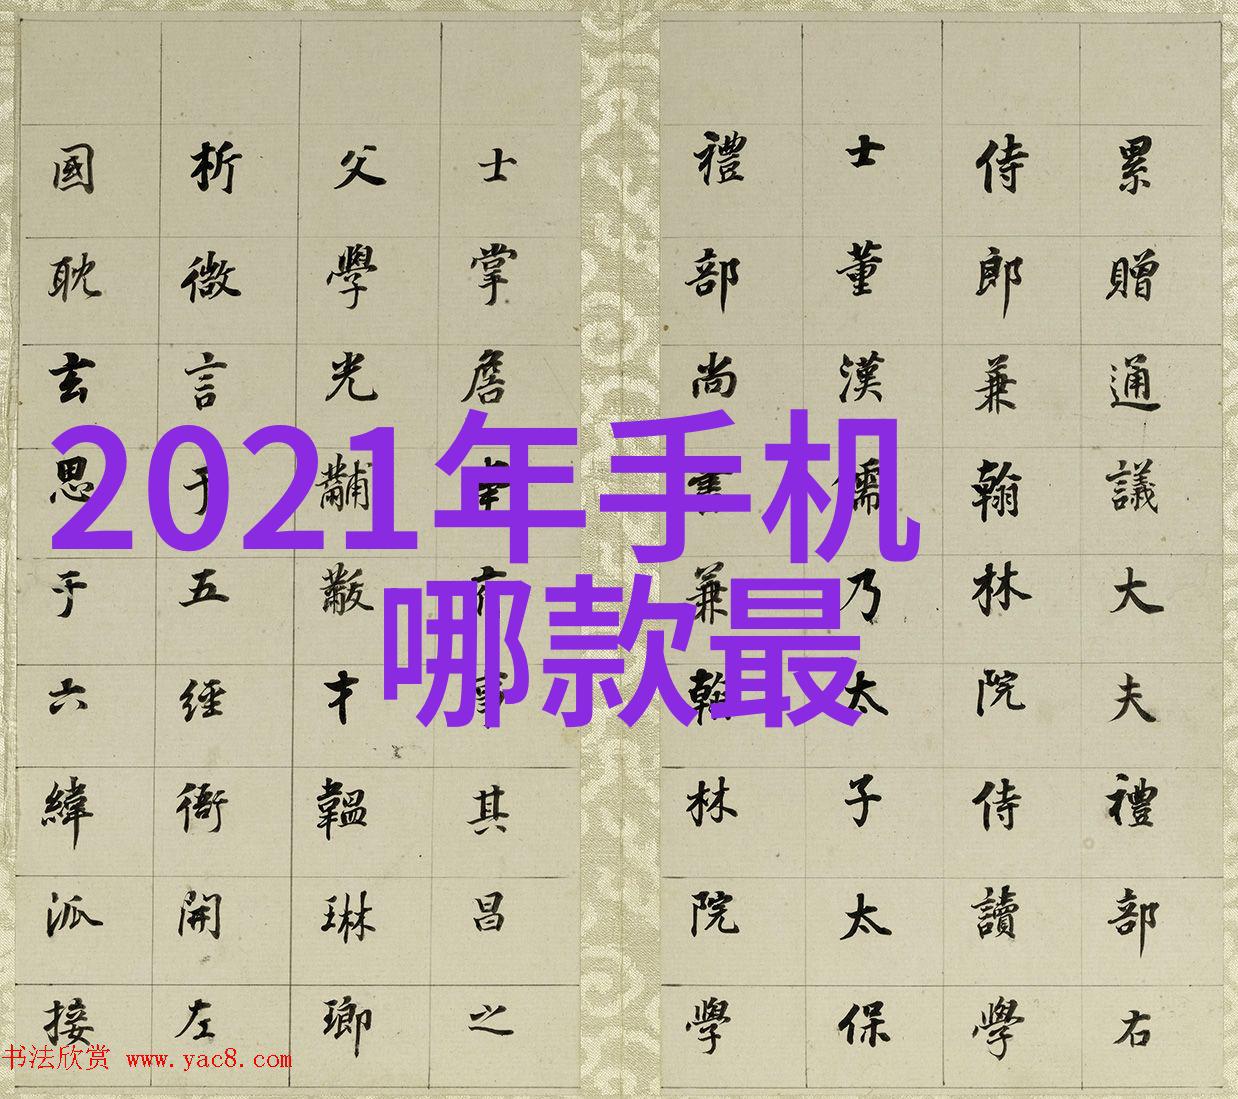 累贈通議大夫禮部右
侍郎兼翰林院侍讀學
士董漢儒乃太子太保
禮部尚書兼翰林院學
士掌詹事府事其昌之
父學光黼黻才韞琳瑯
析微言于五經衙開左
國耽玄思于六緯派接
2021年手机
哪款最
书法欣赏 www.yac8.com